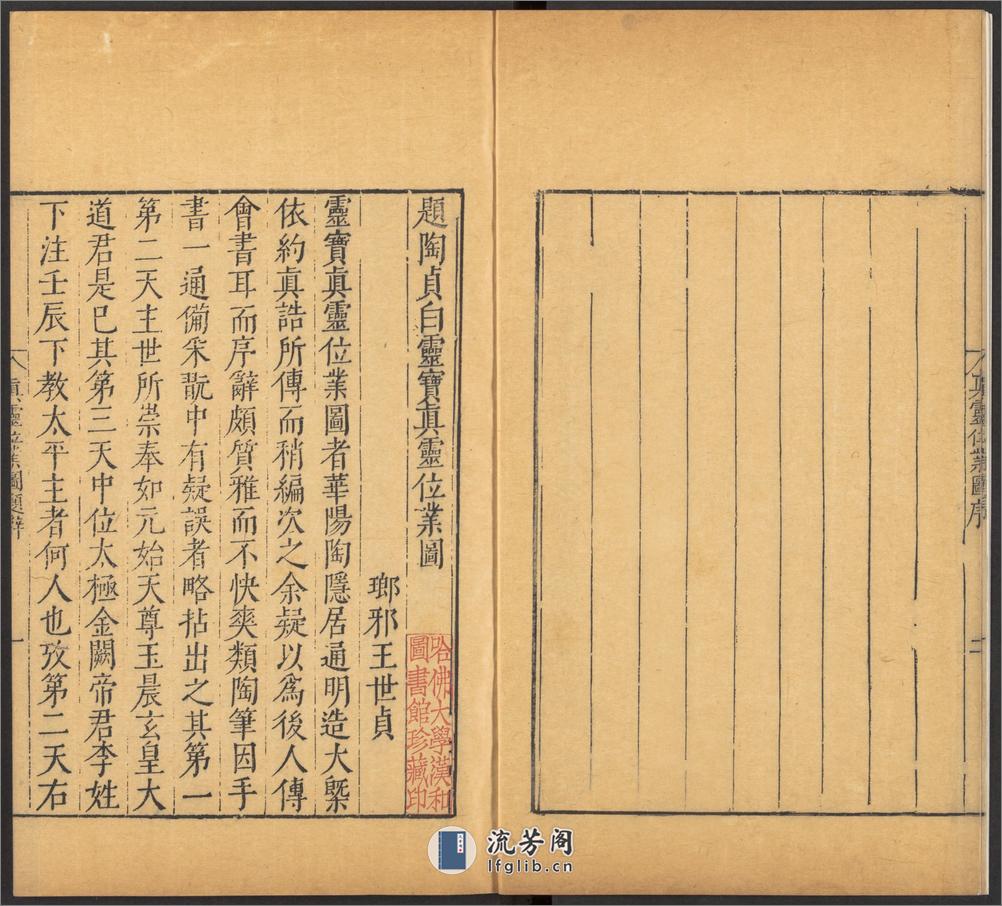 真靈位業圖序
二
題陶貞白靈寶眞靈位業圖
瑯邪王世貞
靈寶眞靈位業圖者華陽陶隱居通明造大槩
依約眞誥所傳而稍編次之余疑以爲後人傳
會書耳而序辭頗質雅而不快爽類陶筆因手
書一通備釆翫中有疑誤者略拈出之其第一
第二天主世所崇奉如元始天尊玉晨玄皇大
道君是已其第三天中位太極金闕帝君李姓
下注壬辰下教太平主者何人也攷第二天右
眞靈位業圖題辭
一
哈佛大學漢和
圖書館珍藏印
流芳阁
lfglib.cn